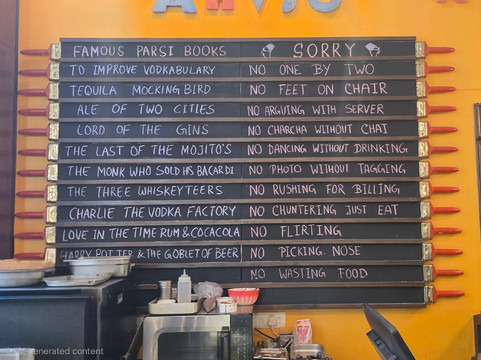 FAMOUS PARSI BOOKS
TO IMPROVE VODKABULARY
TEQUILA MOCKING BIRD
ALE OF TWO CITIES
LORD OF THE GINS
THE LAST OF THE MOJITO'S
THE MONK WHO SOLD HIS BACARDI
THE THREE WHISKEYTEERS
CHARLIE THE VODKA FACTORY
LOVE IN THE TIME RUM & COCACOLA
HARRY POTTER & THE GOBLET OF BEER
SORRY
NO ONE BY TWO
NO FEET ON CHAIR
NO ARGUING WITH SERVER
NO CHARCHA WITHOUT CHAI
NO DANCING WITHOUT DRINKING
NO PHOTO WITHOUT TAGGING
NO RUSHING FOR BILLING
NO CHUNTERING JUST EAT
NO FLIRTING
NO PICKING. NOSE
NO WASTING FOOD